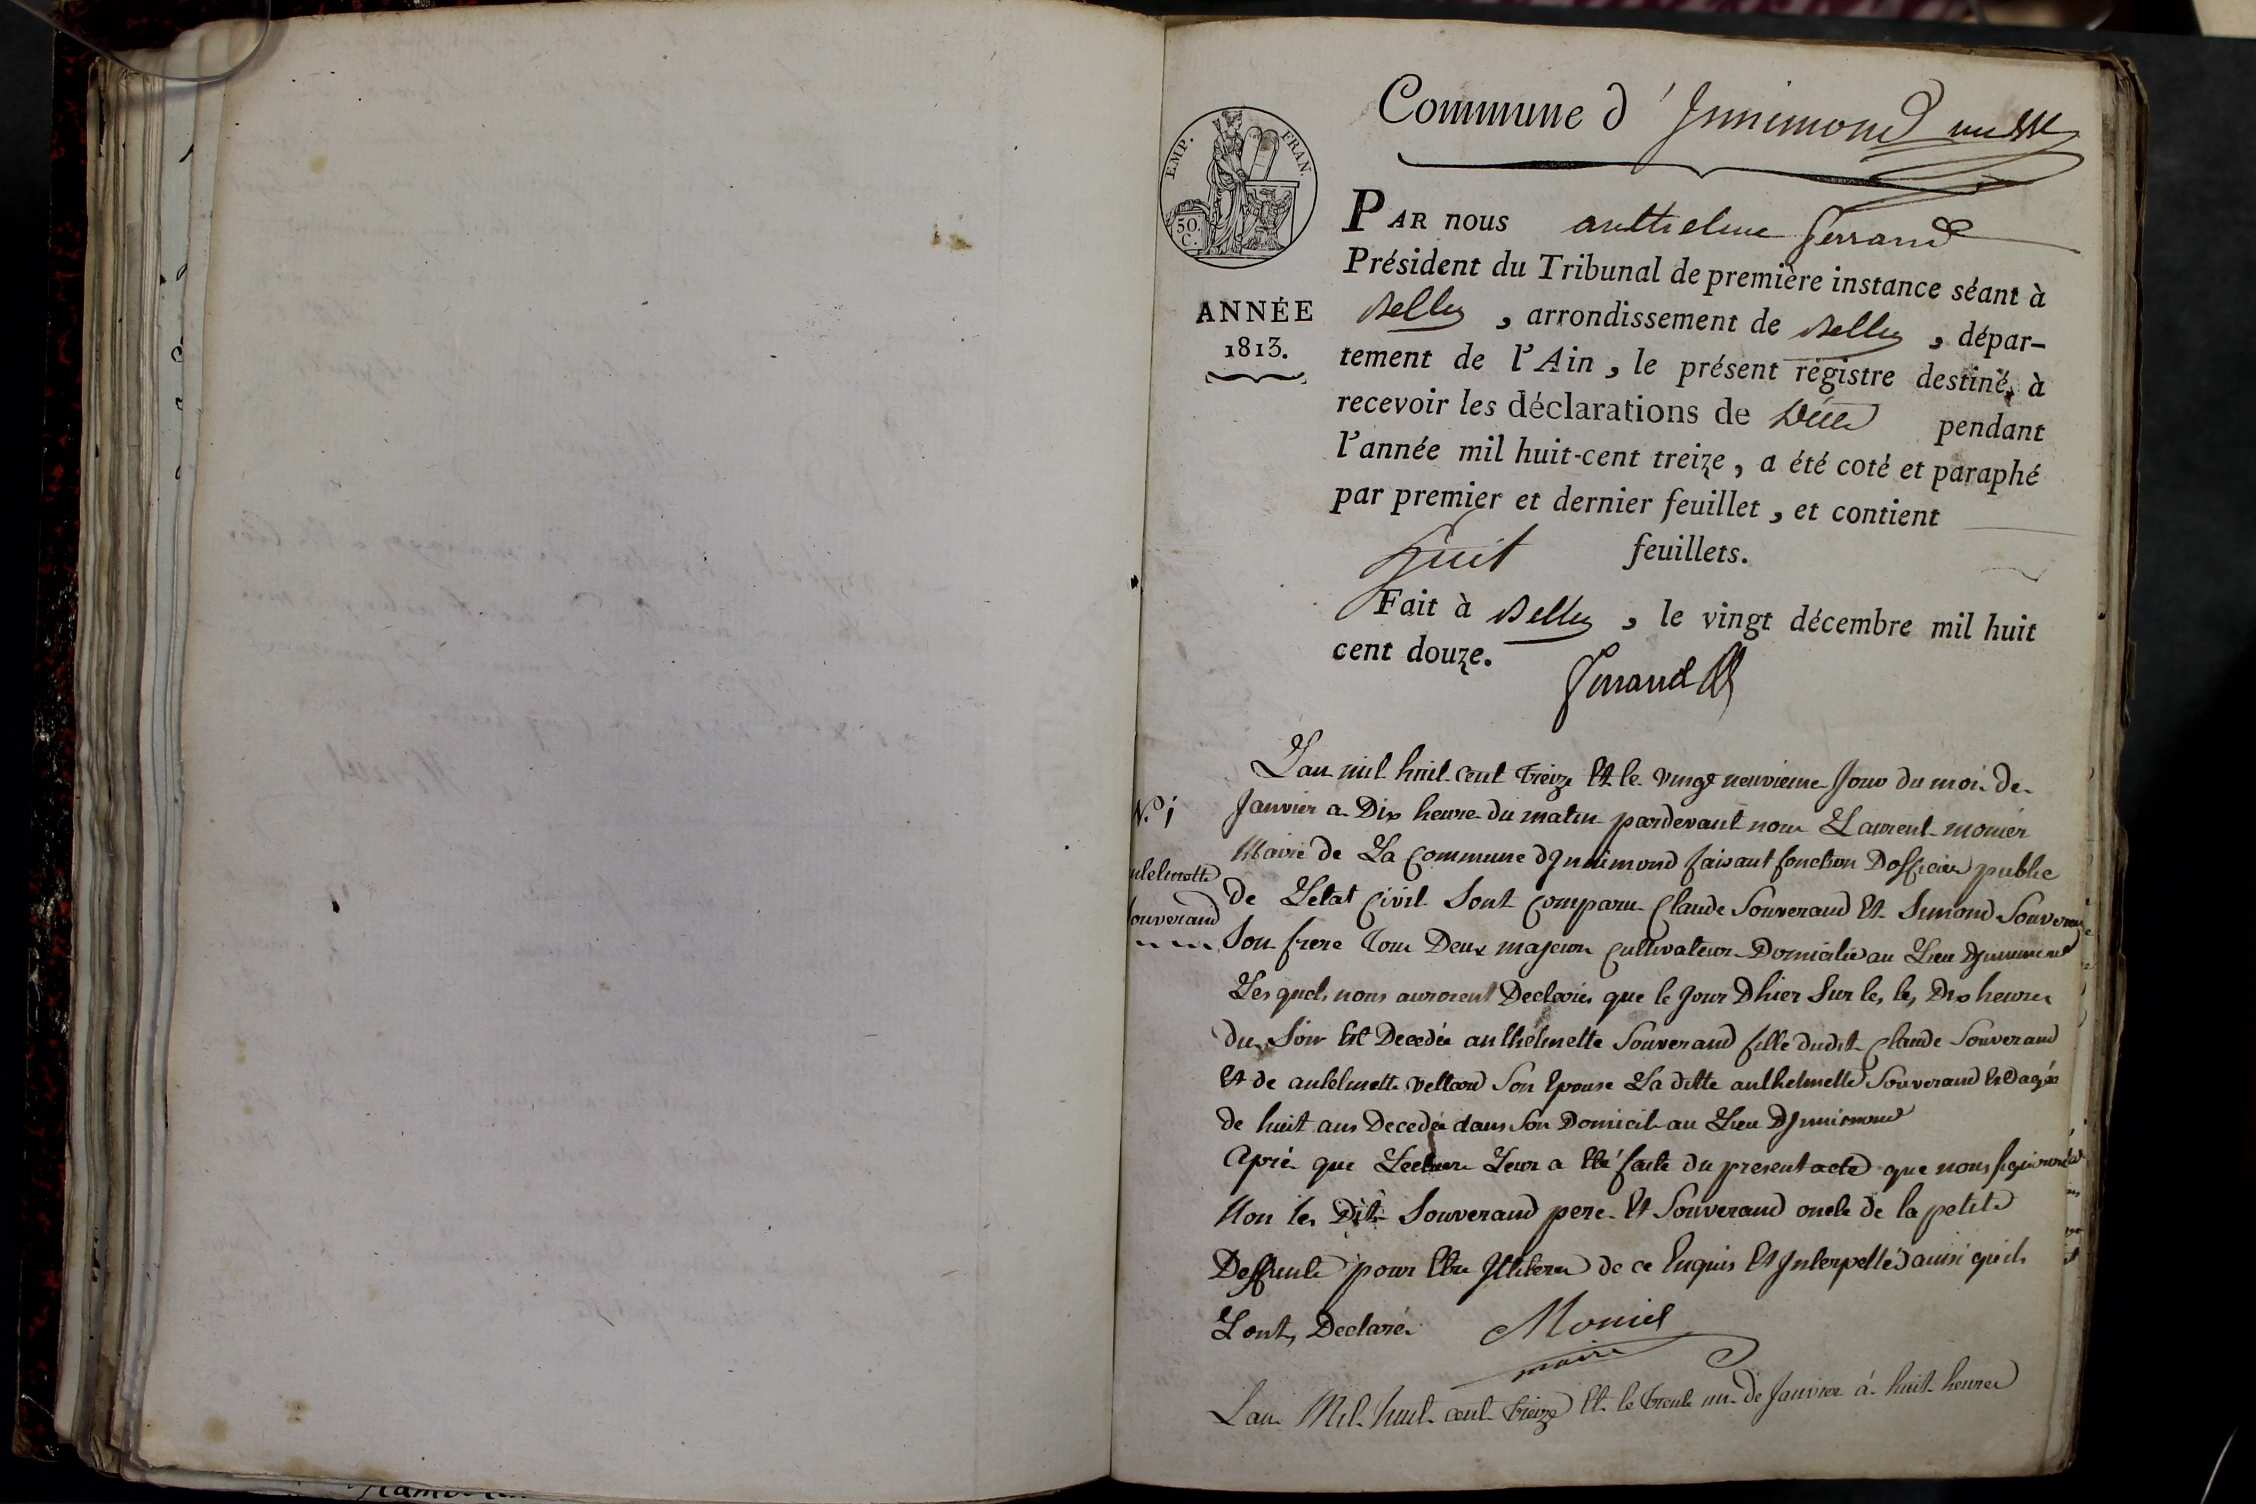 Commune d'Innimond
EMP. FRAN.
50. C.
ANNÉE
1813.
PAR nous anthelme ferrand
Président du Tribunal de première instance séant à
Belley , arrondissement de Belley , dépar-
tement de l'Ain , le présent régistre destiné à
recevoir les déclarations de Décès pendant
l'année mil huit-cent treize , a été coté et paraphé
par premier et dernier feuillet , et contient
huit feuillets.
Fait à Belley , le vingt décembre mil huit
cent douze.
ferrand
N.° 1
thelmette
Souverand
Lan mil huit cent treize Et le vingt neuvieme Jour du moi de
Janvier a Dix heure du matin pardevant nous Laurent monier
Maire de La Commune dInnimond faisant fonction Dofficier public
de Letat Civil Sont Comparu Claude Souverand Et Simond Souverand
Son frere Tous Deux majeur Cultivateur Domicilié au Lieu DInnimond
Les quels nous auroient Declaré que le Jour Dhier Sur les les Dix heures
du Soir Est Decedée anthelmette Souverand fille dudit Claude Souverand
Et de anthelmette Son Epouse La ditte anthelmette Souverand Est agée
de huit ans Decedée dans Son Domicil au Lieu DInnimond
Apré que Lecture Leur a Eté faite du present acte que nous
Non les Dits Souverand pere Et Souverand oncle de la petite
Deffunte pour Etre Illiteré de ce Enquis Et Interpellé ainsi quils
Lont Declaré Monier
maire
Lan Mil huit cent treize Et le trente un de Janvier á huit heures